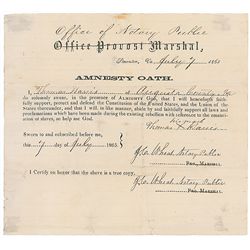 Office of Notary Public
Office Provost Marshal,
Va July 7 1865
AMNESTY OATH.
I Thomas Harris of County, Va
do solemnly swear, in the presence of ALMIGHTY GOD, that I will henceforth
faithfully support, protect and defend the Constitution of the United States, and the Union of the
States thereunder, and that I will, in like manner, abide by and faithfully support all laws and
proclamations which have been made during the existing rebellion with reference to the emanci-
pation of slaves, so help me God.
Thomas Harris
Sworn to and subscribed before me,
this 7 day of July 1865.
Jno. Wheat Notary Public
PRO. MARSHALL
I hereby certify that the above is a true copy.
Jno. Wheat Notary Public
PRO. MARSHALL